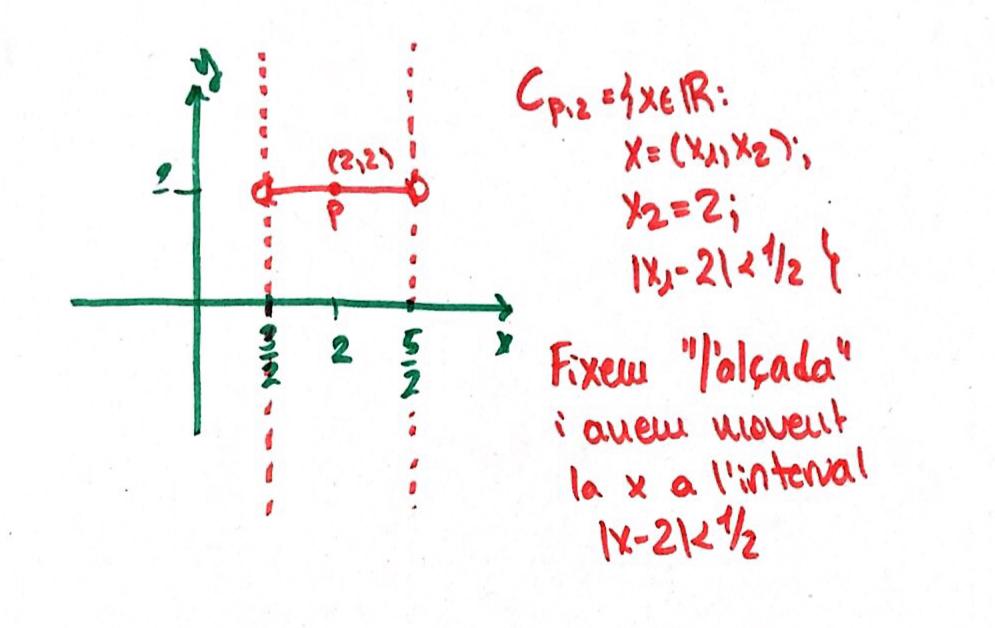 y
(2,2)
2
P
3/2
2
5/2
x
C_{P,2} = {x∈ℝ:
x=(x₁,x₂);
x₂=2;
|x₁-2|<1/2 }
Fixem "l'alçada"
i anem movent
la x a l'interval
|x-2|<1/2